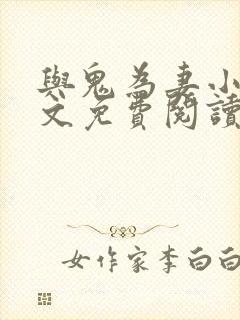 與鬼為妻小
文免費閱讀
女作家李白白